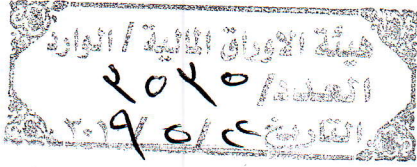 هيئة الاوراق المالية / الوارد
العدد / ٢٥٢٥
التاريخ ٢٠١٩/٥/